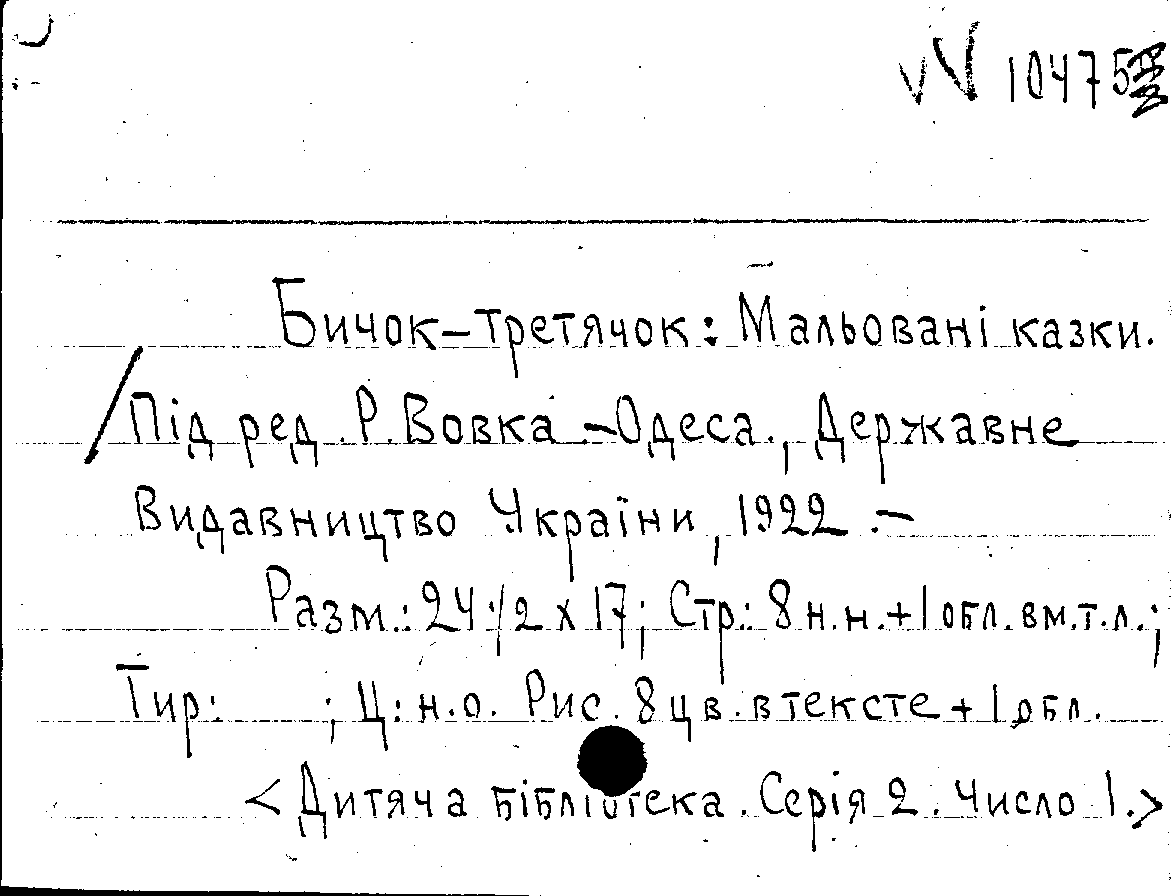 W 10475
Бичок-третячок: Мальовані казки.
/Під ред. Р. Вовка. - Одеса, Державне
Видавництво України, 1922. -
Разм.: 24 1/2 x 17; Стр.: 8 н.н. + 1 обл. вм.т.л.;
Тир: ; Ц: н.о. Рис. 8 цв. в тексте + 1 обл.
<Дитяча бібліотека. Серія 2. Число 1.>